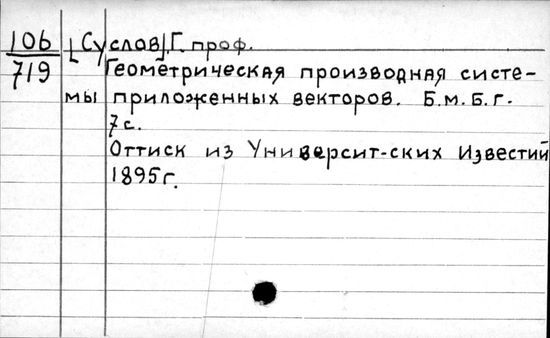 106 [Суслов], Г. проф.
719 Геометрическая производная систе-
мы приложенных векторов. Б.м.Б.г.
7с.
Оттиск из Университ-ских Известий
1895г.